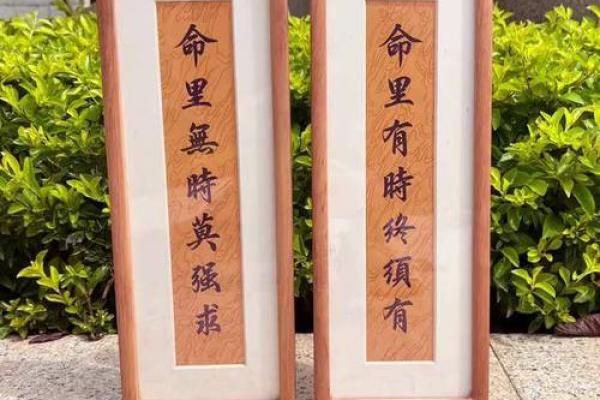 命里有時终須有
命里無時莫强求